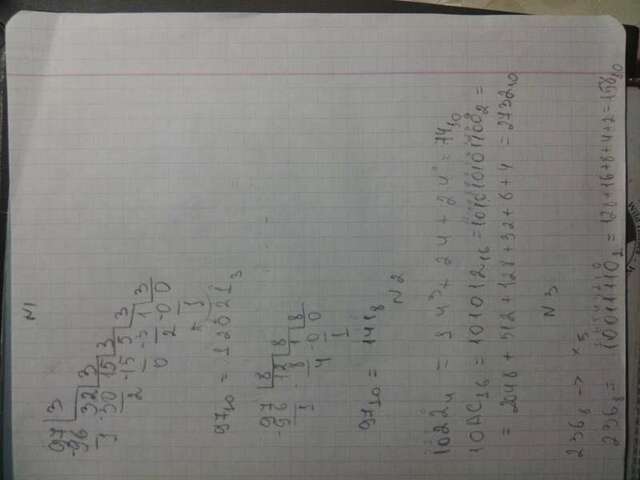 N1
97 | 3
-96 32 | 3
1 -30 15 | 3
2 -15 5 | 3
0 -3 1 | 3
2 -0 0
1
97₁₀ = 12021₃
97 | 8
-96 12 | 8
1 -8 1 | 8
4 -0 0
1
97₁₀ = 141₈
N2
1022₄ = 1·4³ + 2·4 + 2·4⁰ = 74₁₀
10AC₁₆ = 101012₁₆ = 101010101100₂ =
= 2048 + 512 + 128 + 32 + 8 + 4 = 2732₁₀
N3
236₈ -> x₅
236₈ = 10011110₂ = 128+16+8+4+2=158₁₀